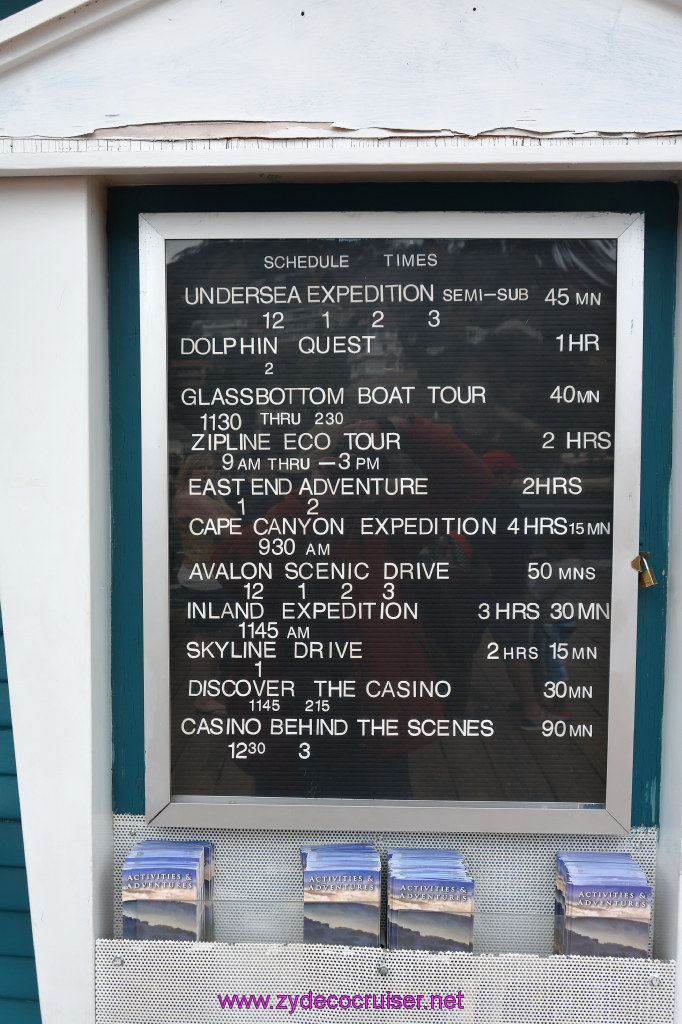 SCHEDULE TIMES
UNDERSEA EXPEDITION SEMI-SUB 45 MN
12 1 2 3
DOLPHIN QUEST 1HR
2
GLASSBOTTOM BOAT TOUR 40MN
1130 THRU 230
ZIPLINE ECO TOUR 2 HRS
9 AM THRU -3 PM
EAST END ADVENTURE 2HRS
1 2
CAPE CANYON EXPEDITION 4HRS 15 MN
930 AM
AVALON SCENIC DRIVE 50 MNS
12 1 2 3
INLAND EXPEDITION 3 HRS 30 MN
1145 AM
SKYLINE DRIVE 2 HRS 15 MN
1
DISCOVER THE CASINO 30MN
1145 215
CASINO BEHIND THE SCENES 90 MN
1230 3
ACTIVITIES & ADVENTURES
ACTIVITIES & ADVENTURES
ACTIVITIES & ADVENTURES
ACTIVITIES & ADVENTURES
www.zydecocruiser.net